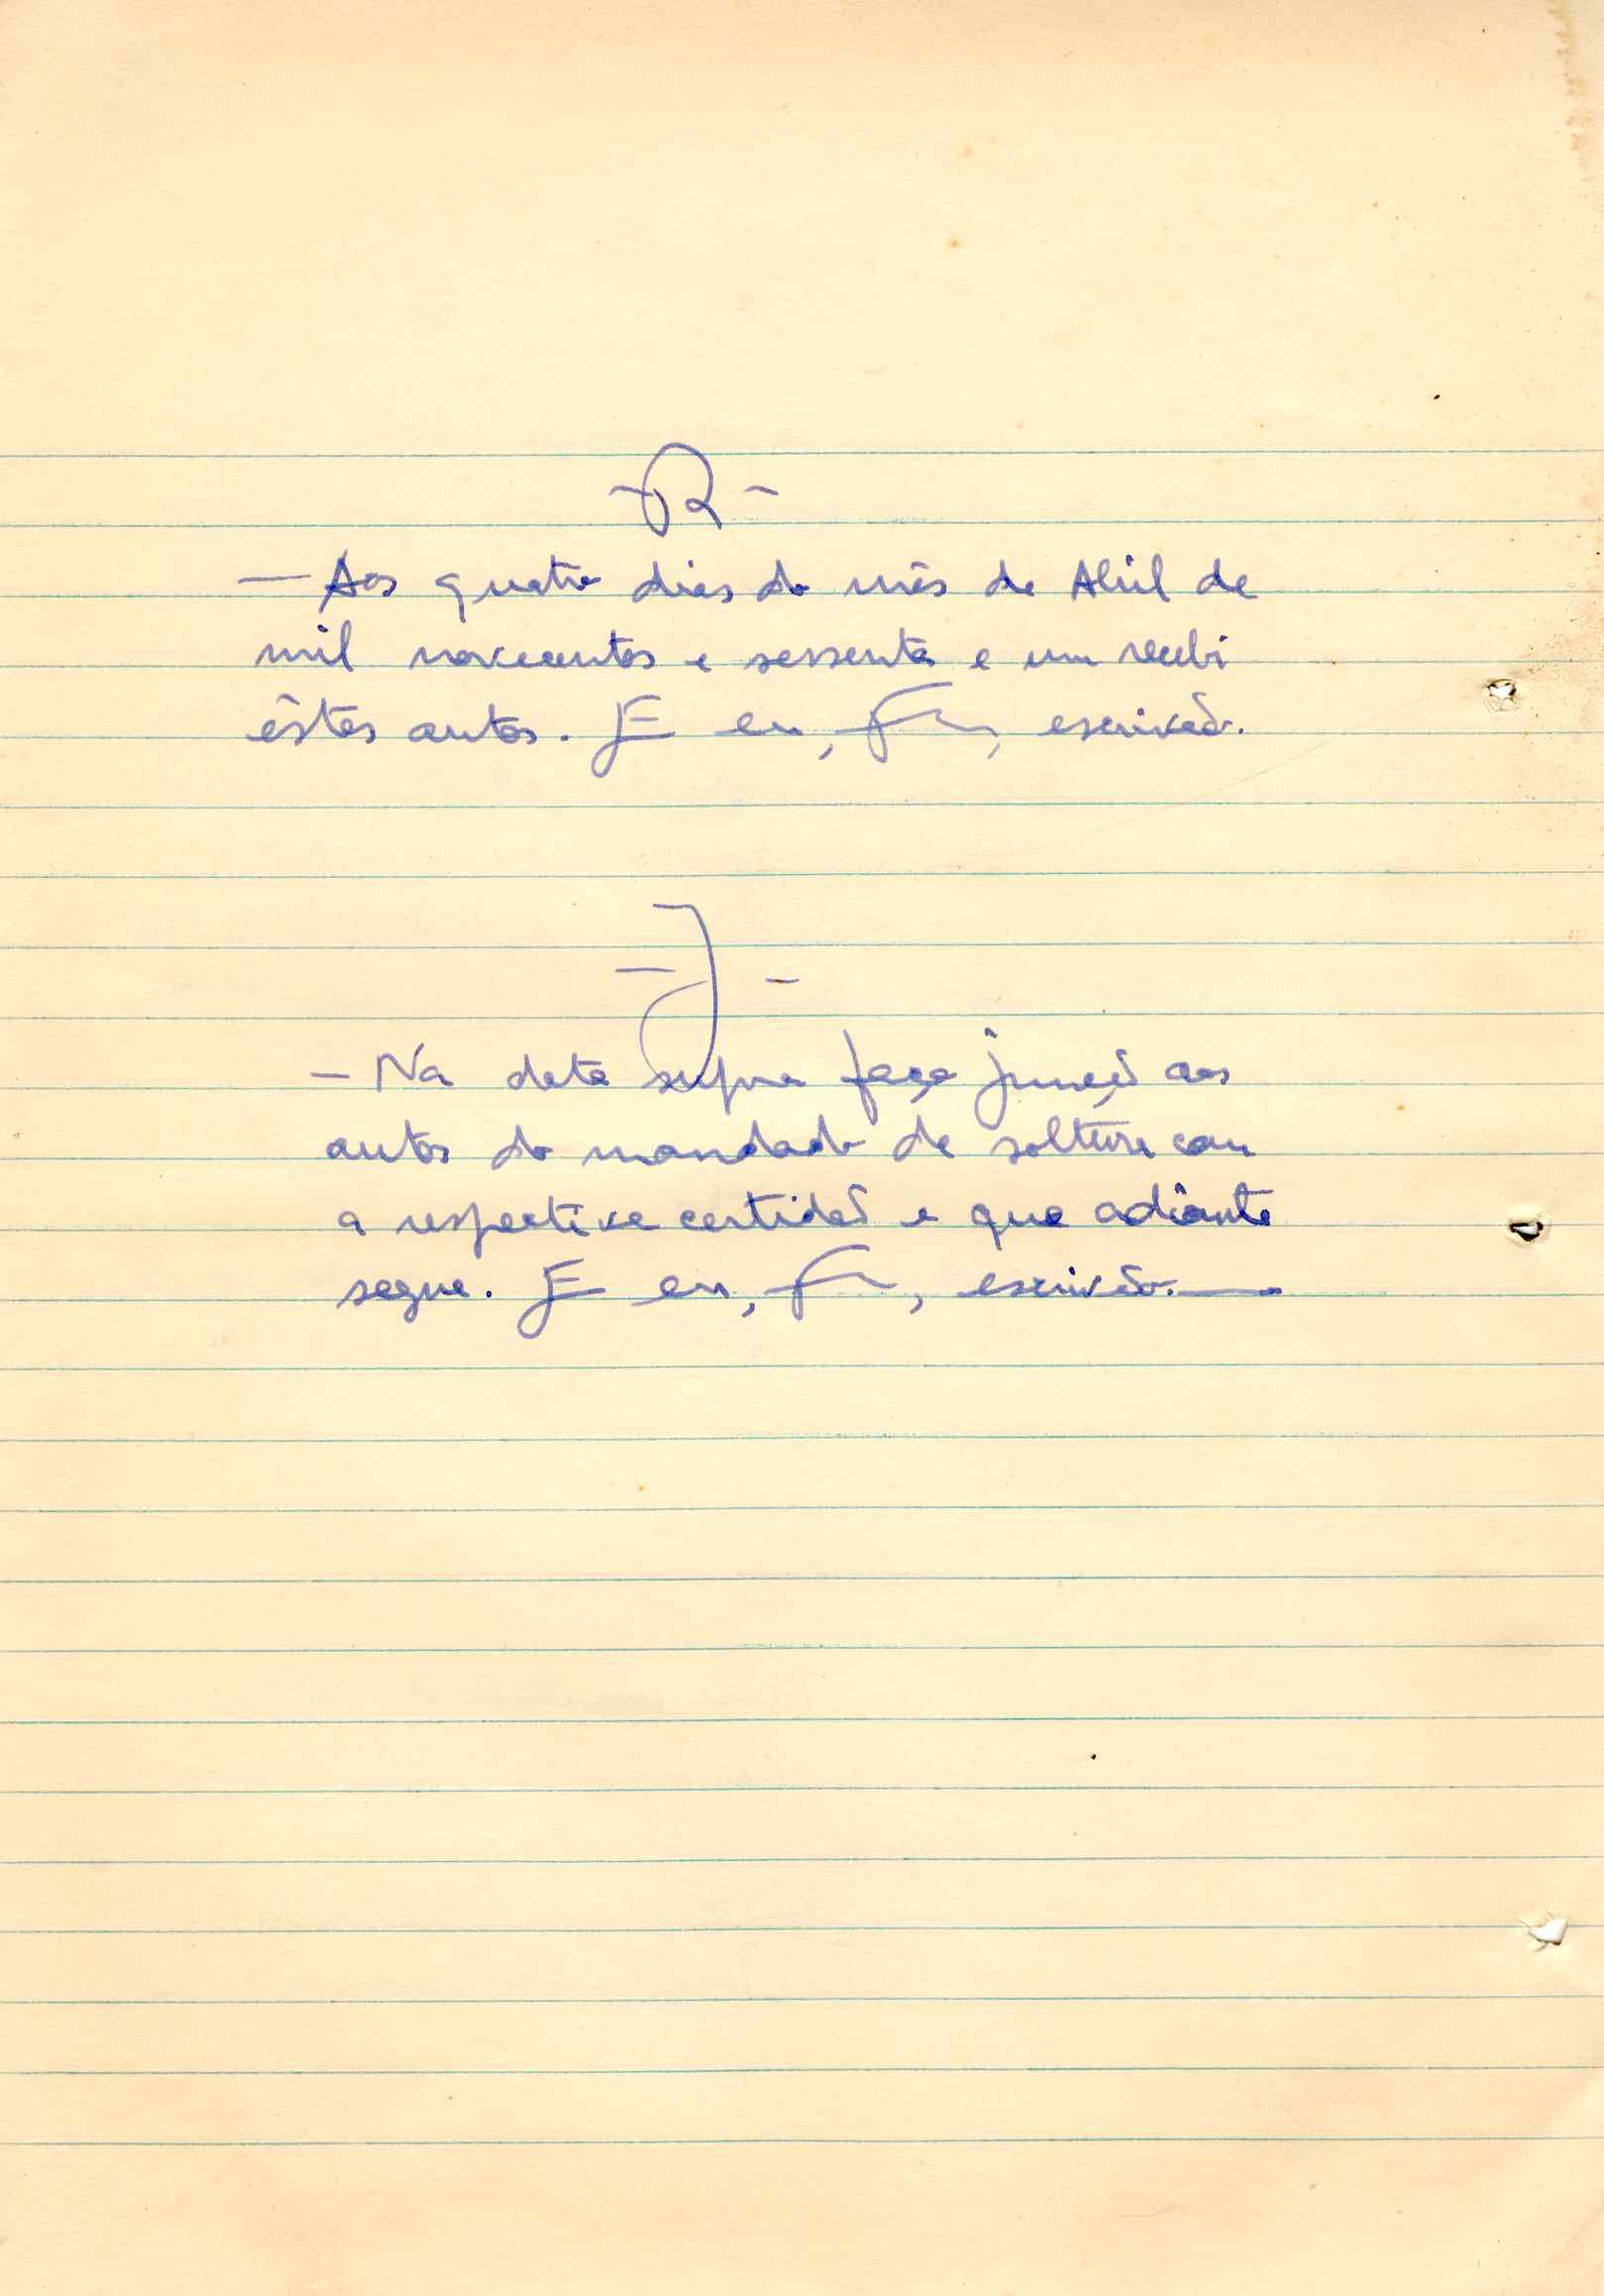 - R -
— Aos quatro dias do mês de Abril de
mil novecentos e sessenta e um recebi
êstes autos. E eu, , escrivão.
- J -
- Na data supra faço junção aos
autos do mandado de soltura com
a respectiva certidão e que adiante
segue. E eu, , escrivão. —